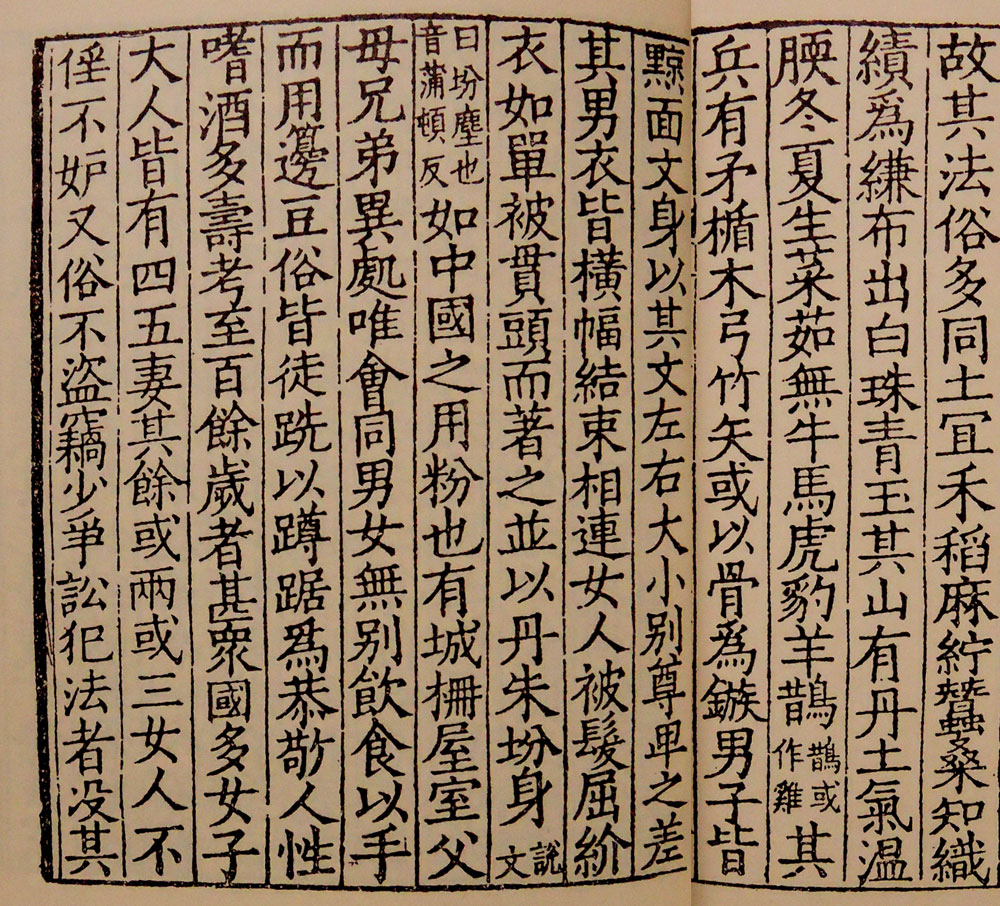 故其法俗多同土冝禾稻麻紵蠶桑知織
績爲縑布出白珠青玉其山有丹土氣溫
腝冬夏生菜茹無牛馬虎豹羊鵲鵲或作雞其
兵有矛楯木弓竹矢或以骨爲鏃男子皆
黥面文身以其文左右大小別尊卑之差
其男衣皆橫幅結束相連女人被髮屈紒
衣如單被貫頭而著之並以丹朱坋身說文
曰坋塵也音蒲頓反如中國之用粉也有城柵屋室父
母兄弟異處唯會同男女無別飲食以手
而用籩豆俗皆徒跣以蹲踞爲恭敬人性
嗜酒多壽考至百餘歲者甚衆國多女子
大人皆有四五妻其餘或兩或三女人不
婬不妒又俗不盜竊少爭訟犯法者没其